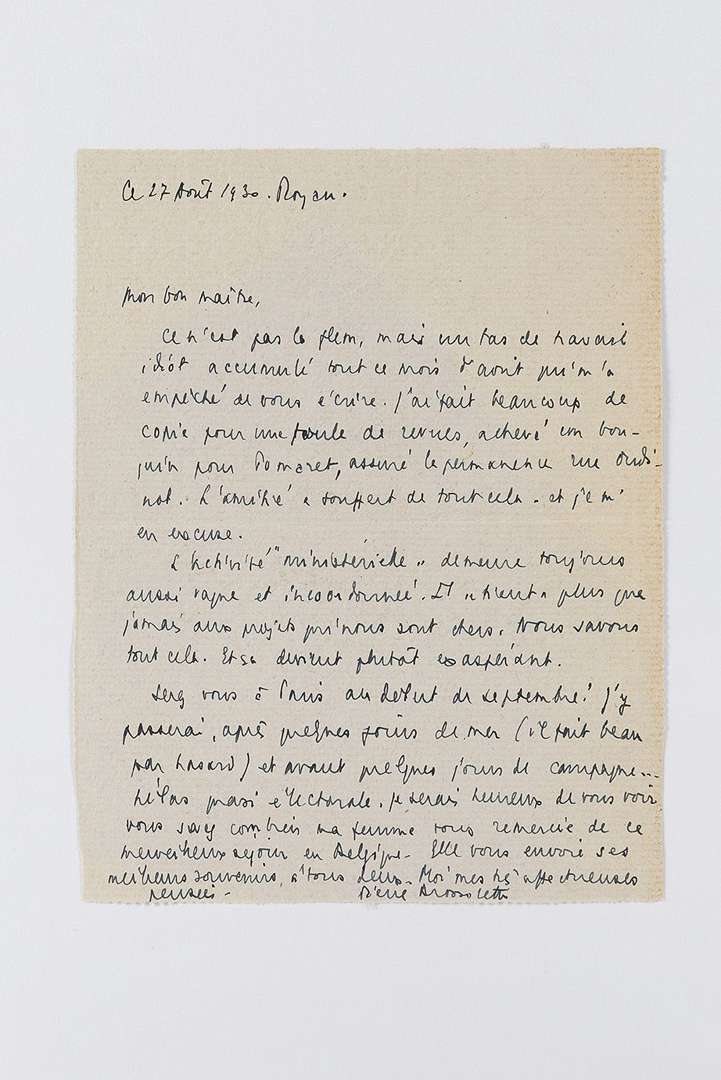 Ce 27 Août 1930. Royan.
Mon bon maître,
Ce n'est pas la flem, mais un tas de travail
idiot accumulé tout ce mois d'août qui m'a
empêché de vous écrire. J'ai fait beaucoup de
copie pour une foule de revues, achevé un bou-
quin pour Pomaret, assuré la permanence rue Oudi-
not. L'amitié a souffert de tout cela - et je m'
en excuse.
L'activité "ministérielle" demeure toujours
aussi vague et incoordonnée. Il "tient" plus que
jamais aux projets qui nous sont chers. Nous savons
tout cela. Et ça devient plutôt exaspérant.
Serez vous à Paris au début de septembre? J'y
passerai, après quelques jours de mer (il fait beau
par hasard) et avant quelques jours de campagne...
hélas quasi électorale. Je serais heureux de vous voir.
Vous savez combien ma femme vous remercie de ce
merveilleux séjour en Belgique. Elle vous envoie ses
meilleurs souvenirs, à tous deux. Moi mes très affectueuses
pensées - Pierre Brossolette